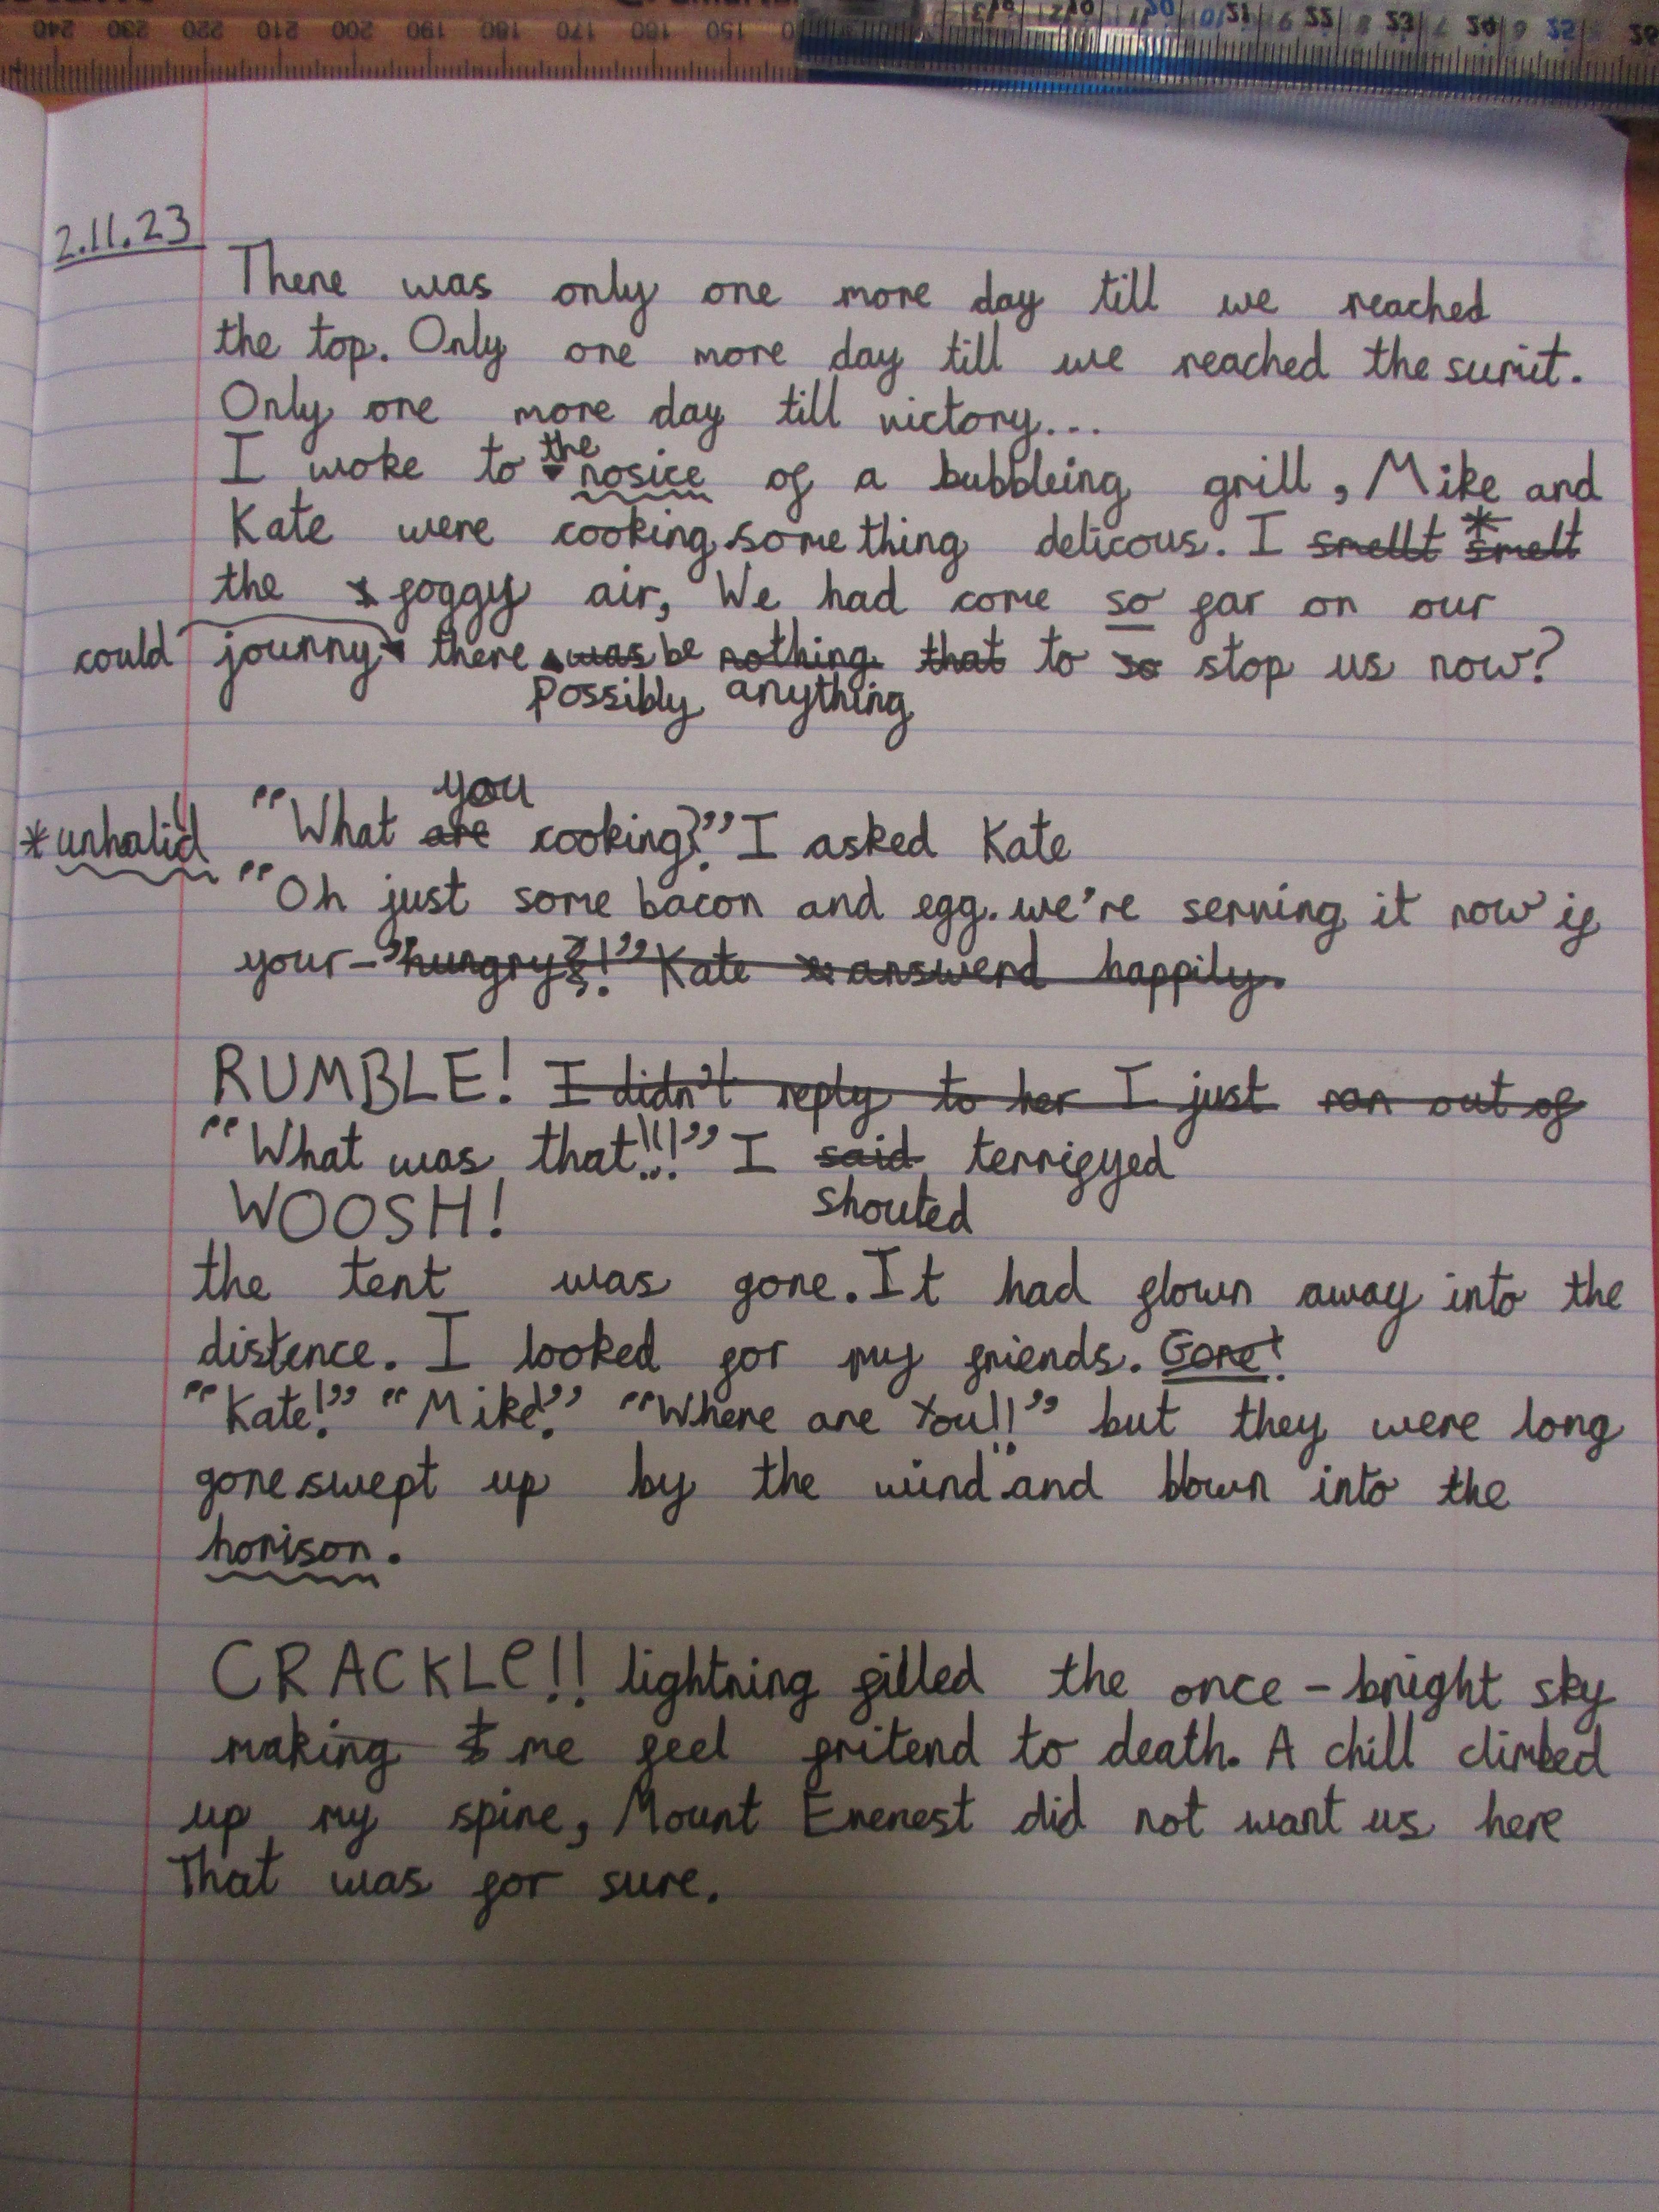 2.11.23
There was only one more day till we reached
the top. Only one more day till we reached the sumit.
Only one more day till victory...
I woke to the nosice of a bubbleing grill, Mike and
Kate were cooking something delicous. I smellt *smelt
the foggy air, We had come so far on our
could journy there was be nothing that to so stop us now?
possibly anything
you
*unhalid "What are cooking?" I asked Kate
"Oh just some bacon and egg. we're serving it now if
your-" hungry?!" Kate answerd happily.
RUMBLE! I didn't reply to her I just ran out of
"What was that!!!" I said terrifyed
WOOSH! shouted
the tent was gone. It had flown away into the
distence. I looked for my friends. Gone!
"Kate!" "Mike!" "Where are You!!" but they were long
gone swept up by the wind and blown into the
horison.
CRACKLe!! lightning filled the once-bright sky
making me feel fritend to death. A chill climbed
up my spine, Mount Everest did not want us here
That was for sure.
240 230 220 210 200 190 180 170 160 150
21 22 23 24 25 26